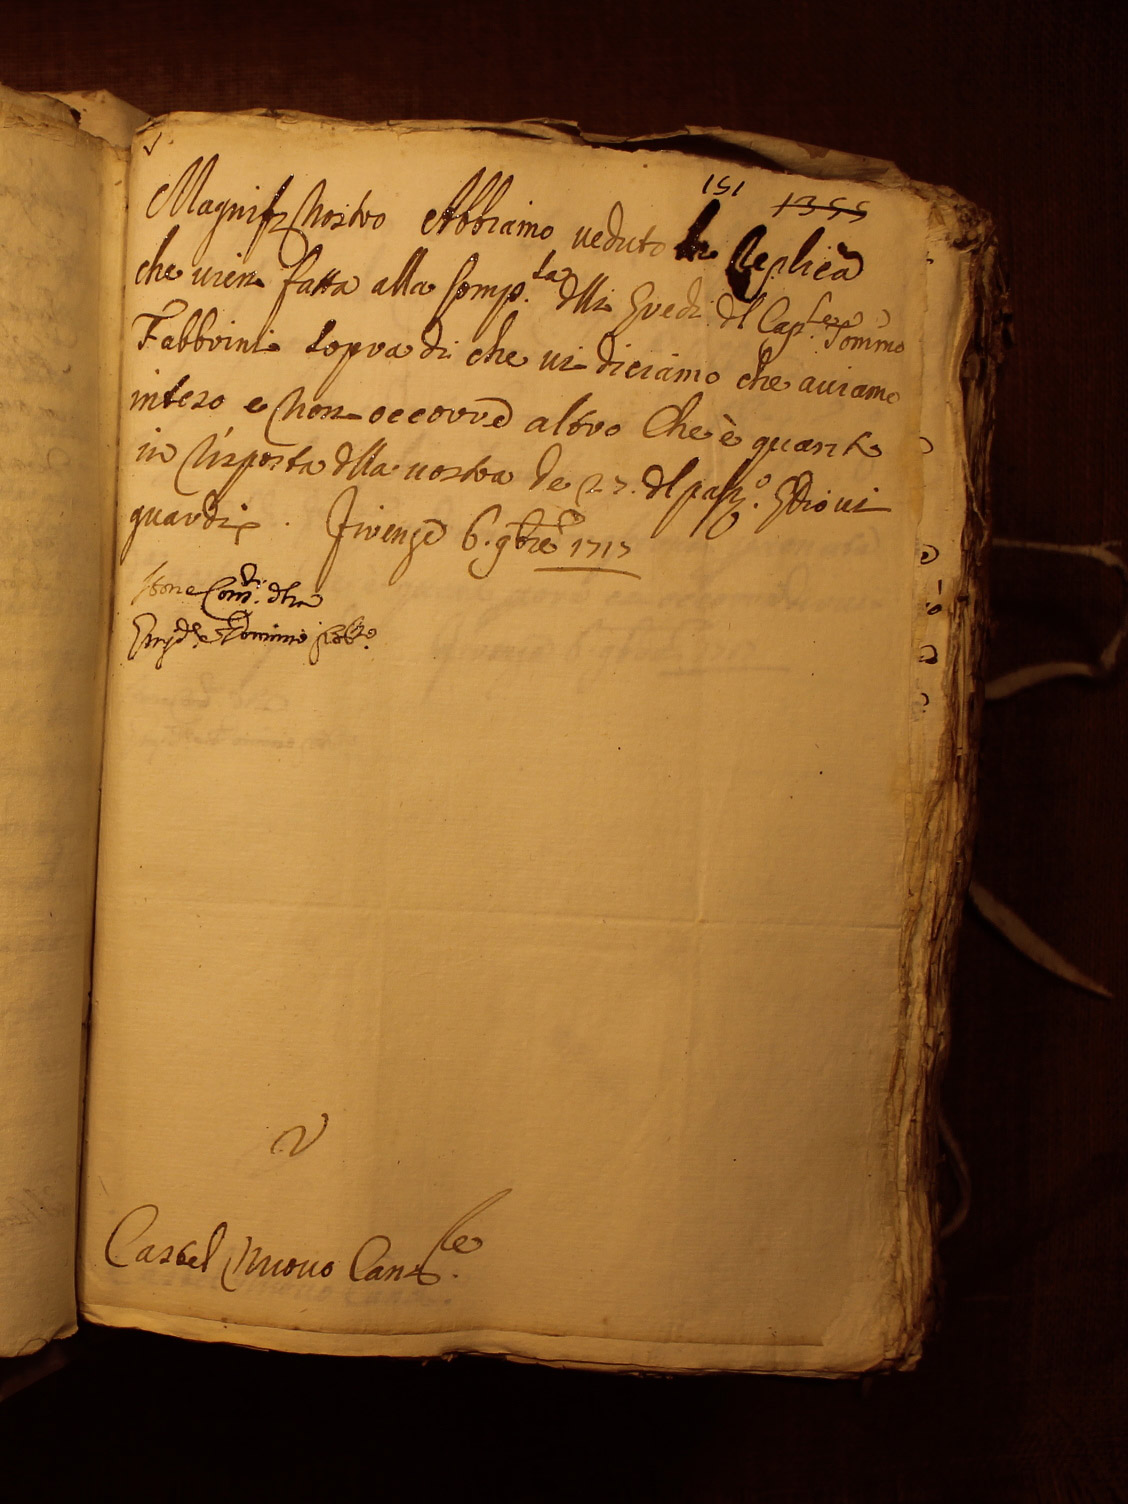 151 1355
Magnif.co Nostro Abbiamo veduto la Replica
che vien fatta alla Comp.ta dlli Eredi dl Cap. Tommo
Fabbrini sopra di che vi diciamo che aviamo
inteso e non occorre altro che è quanto
in risposta dlla vostra de 27. dl pass.o E Dio vi
guardi. Firenze 6. 9bre 1717
Cons. dlla
e Dominio
Castel nuovo Canc.le